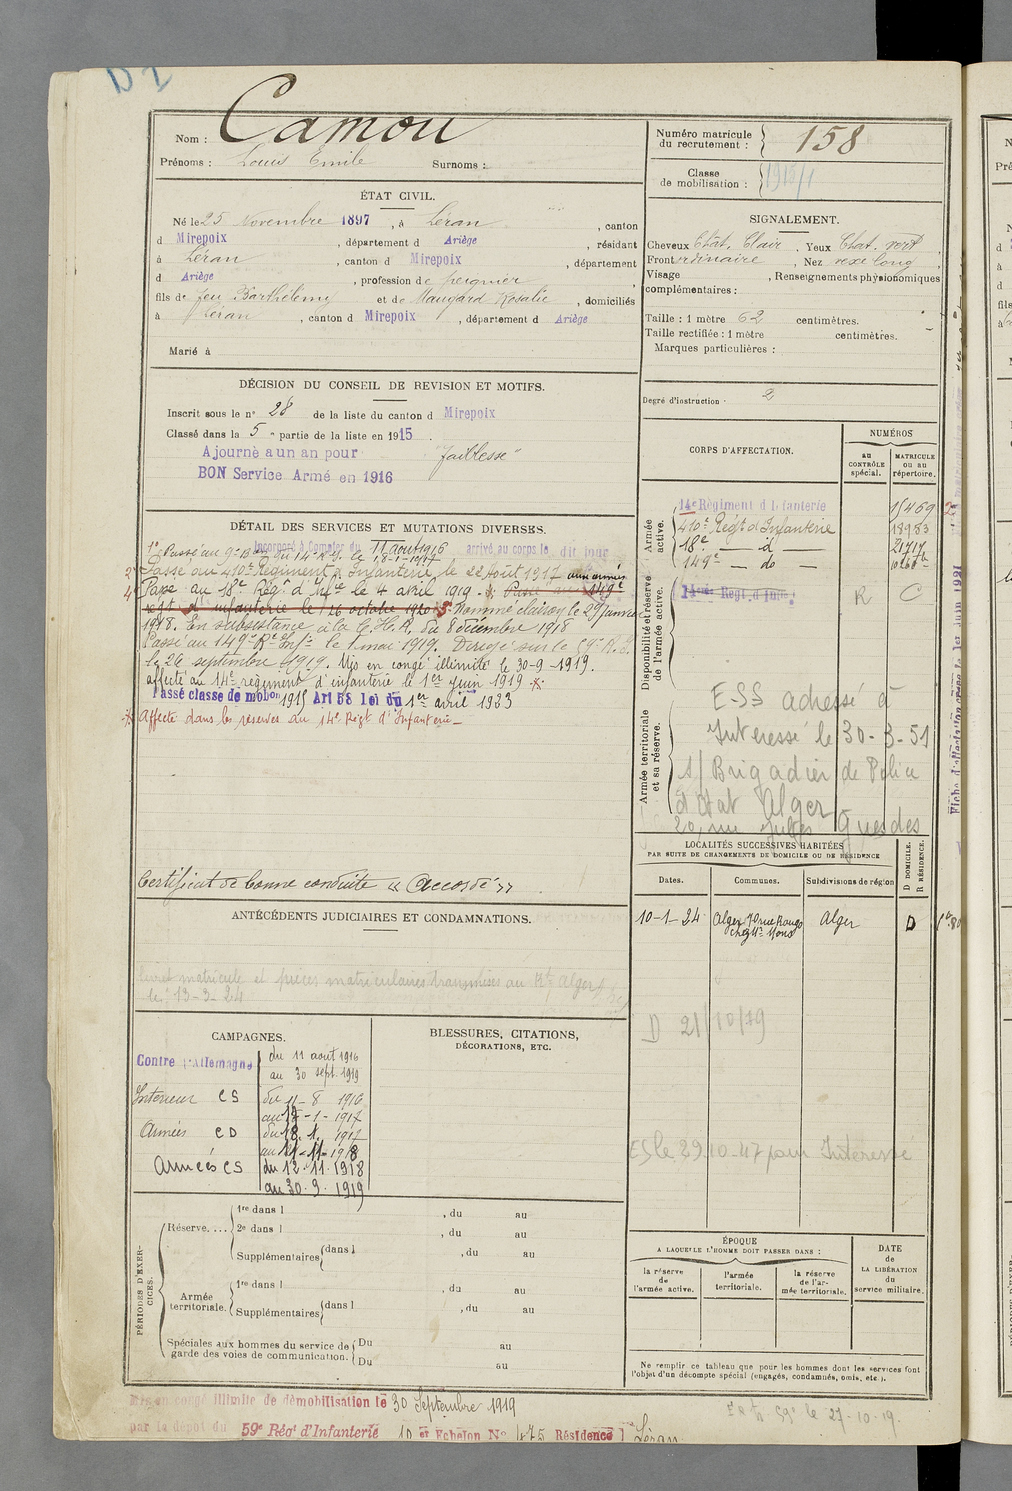 D 2
Nom : Camou
Prénoms : Louis Emile Surnoms :
Numéro matricule du recrutement : 158
Classe de mobilisation :
ÉTAT CIVIL.
Né le 25 Novembre 1897, à Léran, canton
d Mirepoix, département d Ariège, résidant
à Léran, canton d Mirepoix, département
d Ariège, profession de peignier
fils de feu Barthélemy et de Maugard Rosalie, domiciliés
à Léran, canton d Mirepoix, département d Ariège
Marié à
SIGNALEMENT.
Cheveux Chât. Clair. Yeux Chat. vert
Front ordinaire, Nez vexe long
Visage , Renseignements physionomiques
complémentaires :
Taille : 1 mètre 62 centimètres.
Taille rectifiée : 1 mètre centimètres.
Marques particulières :
Degré d'instruction : 2
DÉCISION DU CONSEIL DE REVISION ET MOTIFS.
Inscrit sous le n° 28 de la liste du canton d Mirepoix
Classé dans la 5e partie de la liste en 1915.
Ajourné a un an pour "faiblesse"
BON Service Armé en 1916
DÉTAIL DES SERVICES ET MUTATIONS DIVERSES.
Incorporé à Compter du 11 août 1916 arrivé au corps le dit jour
1° Passé au 9e Bon du 14e R.I. le 18-1-1917
2° Passé au 410e Régiment d'Infanterie le 22 Août 1917 aux armées
Passé au 18e Régt d'Infie le 4 avril 1919. Passé au 149e
régt d'infanterie le 16 octobre 1920 Nommé clairon le 29 janvier
1918. En subsistance à la C.H.R. du 8 décembre 1918
Passé au 149e Rt Infie le 1er mai 1919. Dirigé sur le 59e R.I.
le 26 septembre 1919. Mis en congé illimité le 30-9-1919.
affecté au 14e régiment d'infanterie le 1er Juin 1919
Passé classe de mobon 1915 Art 58 Loi du 1er avril 1923
Affecté dans les réserves du 14e Régt d'Infanterie
Certificat de bonne conduite « Accordé »
CORPS D'AFFECTATION.
NUMÉROS
au CONTRÔLE spécial.
MATRICULE ou au répertoire.
Armée active.
14e Régiment d'Infanterie 15469
410e Régt d'Infanterie 18983
18e — d° — 21717
149e — do —
Disponibilité et réserve de l'armée active.
14ème Régt. d'Infie. R C
Armée territoriale et sa réserve.
ESS adressé à
Intéressé le 30-3-51
s/ Brigadier de Police
d'Etat Alger
20, rue Jules Guesdes
LOCALITÉS SUCCESSIVES HABITÉES
PAR SUITE DE CHANGEMENTS DE DOMICILE OU DE RÉSIDENCE
Dates. Communes. Subdivisions de région
D DOMICILE. R RÉSIDENCE.
10-1-24 Alger Alger D
D 21/10/79
ES le 29.10-47 pour Intéressé
ANTÉCÉDENTS JUDICIAIRES ET CONDAMNATIONS.
Livret matricule et pièces matriculaires transmises au Rt Alger
le 13-3-24
CAMPAGNES.
Contre l'Allemagne du 11 août 1916
au 30 sept. 1919
Intérieur CS du 11-8 1916
au 17-1-1917
Armées CD du 18.1. 1917
au 11-11-1918
Armées CS du 12.11.1918
au 30.9.1919
BLESSURES, CITATIONS,
DÉCORATIONS, ETC.
PÉRIODES D'EXERCICES.
Réserve.... 1re dans l , du au
2e dans l , du au
Supplémentaires dans l , du au
Armée territoriale. 1re dans l , du au
Supplémentaires dans l , du au
Spéciales aux hommes du service de Du au
garde des voies de communication. Du au
ÉPOQUE
A LAQUELLE L'HOMME DOIT PASSER DANS :
la réserve de l'armée active.
l'armée territoriale.
la réserve de l'armée territoriale.
DATE de LA LIBÉRATION du service militaire.
Ne remplir ce tableau que pour les hommes dont les services font
l'objet d'un décompte spécial (engagés, condamnés, omis, etc.).
Mis en congé illimité de démobilisation le 30 Septembre 1919
par le dépôt du 59e Régt d'Infanterie 10 et Echelon N° 475 Résidence Léran
59e le 27-10-19.